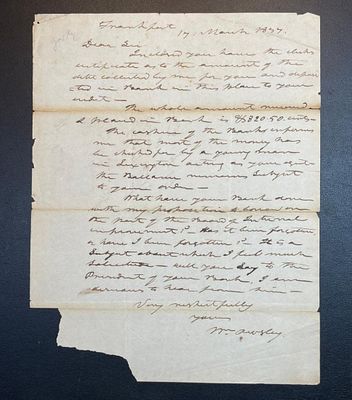 Frankfort
17. March 1837.
Dear Sir
Enclosed you have the clerks
certificate as to the amount of the
debt collected by me for you and deposi
ted in Bank in this place to your
credit—
The whole amount received
& placed in Bank is $ 820.50 cents—
The cashier of the Bank informs
me that most of the money has
been checked for by a young man
in Lexington acting as your agent—
the Ballance remains Subject
to your order—
What have your Bank done
with my proposition on
the part of the Board of Internal
improvement?— Has it been forgotten
or have I been forgotten?— It is a
Subject about which I feel much
Solicitude— will you Say to the
President of your Bank, I am
anxious to hear from him—
Very respectfully
yours
Wm Owsley